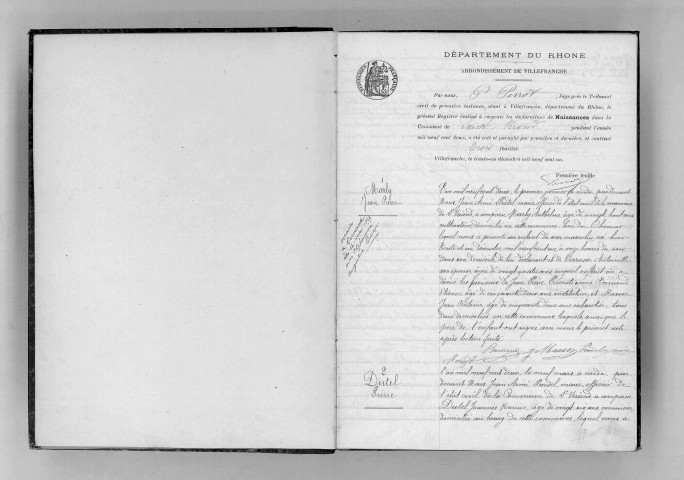 DÉPARTEMENT DU RHONE
ARRONDISSEMENT DE VILLEFRANCHE
Par nous, P. Perrot, Juge près le Tribunal
civil de première instance, séant à Villefranche, département du Rhône, le
présent Registre destiné à recevoir les déclarations de Naissances dans la
Commune de Saint Vérand pendant l'année
mil neuf cent deux, a été coté et paraphé par première et dernière, et contient
trois feuilles.
Villefranche, le trente-un décembre mil neuf cent un.
Première feuille
1
Morly
Jean Pierre
L'an mil neuf cent deux, le premier janvier à midi, par devant
Nous Jean Aimé Pridel, maire, officier de l'état civil de la commune
de St Vérand, a comparu Morly Anthelme, âgé de vingt huit ans
cultivateur domicilié en cette commune, lieu du
lequel nous a présenté un enfant du sexe masculin, né hier
trente et un décembre mil neuf cent un, à onze heures du soir
dans son domicile, de lui déclarant et de Terrasse Antoinette
son épouse, âgée de vingt quatre ans auquel enfant on a
donné les prénoms de Jean Pierre. Présents
âgé de cinquante deux ans instituteur, et Masson
Jean Antoine, âgé de cinquante deux ans cabaretier, tous
deux domiciliés en cette commune, lesquels ainsi que le
père de l'enfant ont signé avec nous le présent acte
après lecture faite.
Masson Pridel, maire
2
Distel
Pierre
L'an mil neuf cent deux, le neuf mars, à midi, par
devant Nous Jean Aimé Pridel, maire, officier de
l'état civil de la Commune de St Vérand a comparu
Distel Joannes Marius, âgé de vingt six ans, menuisier,
domicilié au bourg de cette commune, lequel nous a